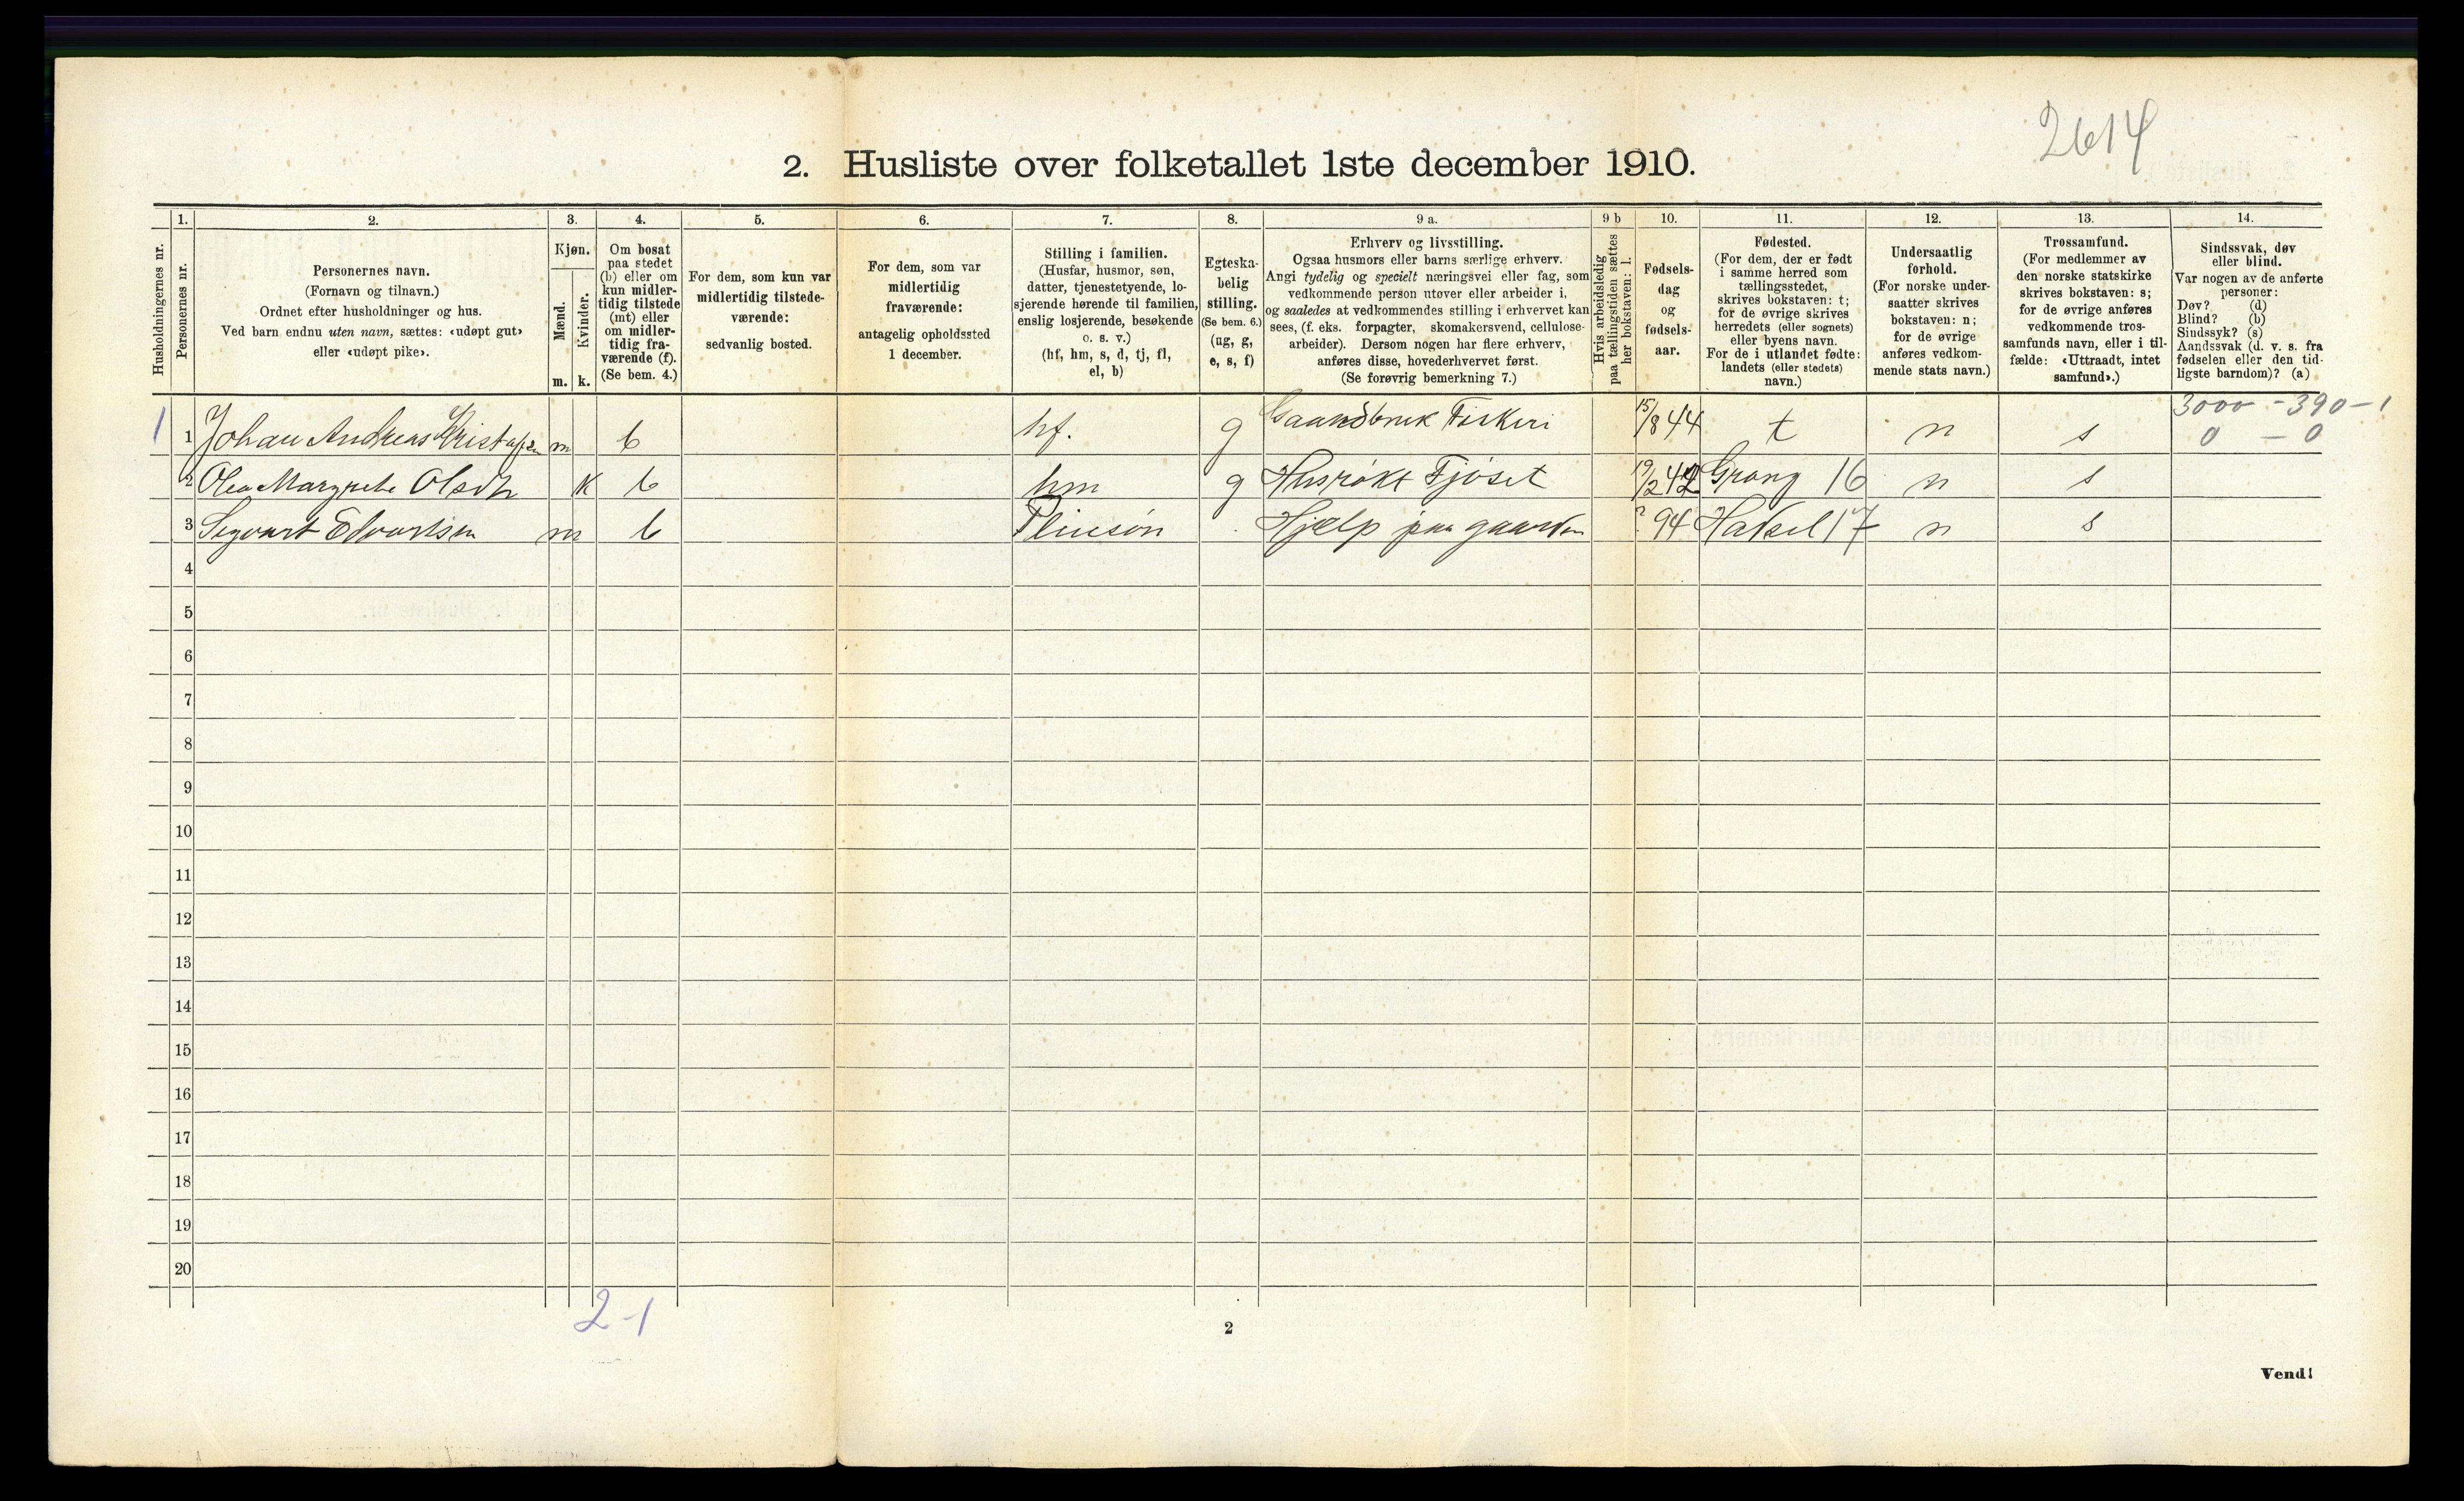 2614
2. Husliste over folketallet 1ste december 1910.
Husholdningernes nr.
1.
Personernes nr.
2.
Personernes navn.
(Fornavn og tilnavn.)
Ordnet efter husholdninger og hus.
Ved barn endnu uten navn, sættes: «udøpt gut»
eller «udøpt pike».
3.
Kjøn.
Mænd.
Kvinder.
m. k.
4.
Om bosat
paa stedet
(b) eller om
kun midler-
tidig tilstede
(mt) eller
om midler-
tidig fra-
værende (f).
(Se bem. 4.)
5.
For dem, som kun var
midlertidig tilstede-
værende:
sedvanlig bosted.
6.
For dem, som var
midlertidig
fraværende:
antagelig opholdssted
1 december.
7.
Stilling i familien.
(Husfar, husmor, søn,
datter, tjenestetyende, lo-
sjerende hørende til familien,
enslig losjerende, besøkende
o. s. v.)
(hf, hm, s, d, tj, fl,
el, b)
8.
Egteska-
belig
stilling.
(Se bem. 6.)
(ug, g,
e, s, f)
9 a.
Erhverv og livsstilling.
Ogsaa husmors eller barns særlige erhverv.
Angi tydelig og specielt næringsvei eller fag, som
vedkommende person utøver eller arbeider i,
og saaledes at vedkommendes stilling i erhvervet kan
sees, (f. eks. forpagter, skomakersvend, cellulose-
arbeider). Dersom nogen har flere erhverv,
anføres disse, hovederhvervet først.
(Se forøvrig bemerkning 7.)
9 b
Hvis arbeidsledig
paa tællingstiden sættes
her bokstaven: l.
10.
Fødsels-
dag
og
fødsels-
aar.
11.
Fødested.
(For dem, der er født
i samme herred som
tællingsstedet,
skrives bokstaven: t;
for de øvrige skrives
herredets (eller sognets)
eller byens navn.
For de i utlandet fødte:
landets (eller stedets)
navn.)
12.
Undersaatlig
forhold.
(For norske under-
saatter skrives
bokstaven: n;
for de øvrige
anføres vedkom-
mende stats navn.)
13.
Trossamfund.
(For medlemmer av
den norske statskirke
skrives bokstaven: s;
for de øvrige anføres
vedkommende tros-
samfunds navn, eller i til-
fælde: «Uttraadt, intet
samfund».)
14.
Sindssvak, døv
eller blind.
Var nogen av de anførte
personer:
Døv? (d)
Blind? (b)
Sindssyk? (s)
Aandssvak (d. v. s. fra
fødselen eller den tid-
ligste barndom)? (a)
3000 - 390 - 1
0 - 0
1 1 Johan Andreas m b hf. g Gaardbruk Fiskeri 15/8 44 t n s
2 Olea Margrete Olsdtr k b hm g Husrøkt Fjøset 19/2 42 Grong 16 n s
3 Segvart Edvartsen m b Pleiesøn Hjelp paa gaarden ? 94 Hadsel 17 n s
4
5
6
7
8
9
10
11
12
13
14
15
16
17
18
19
20
2-1
2
Vend!